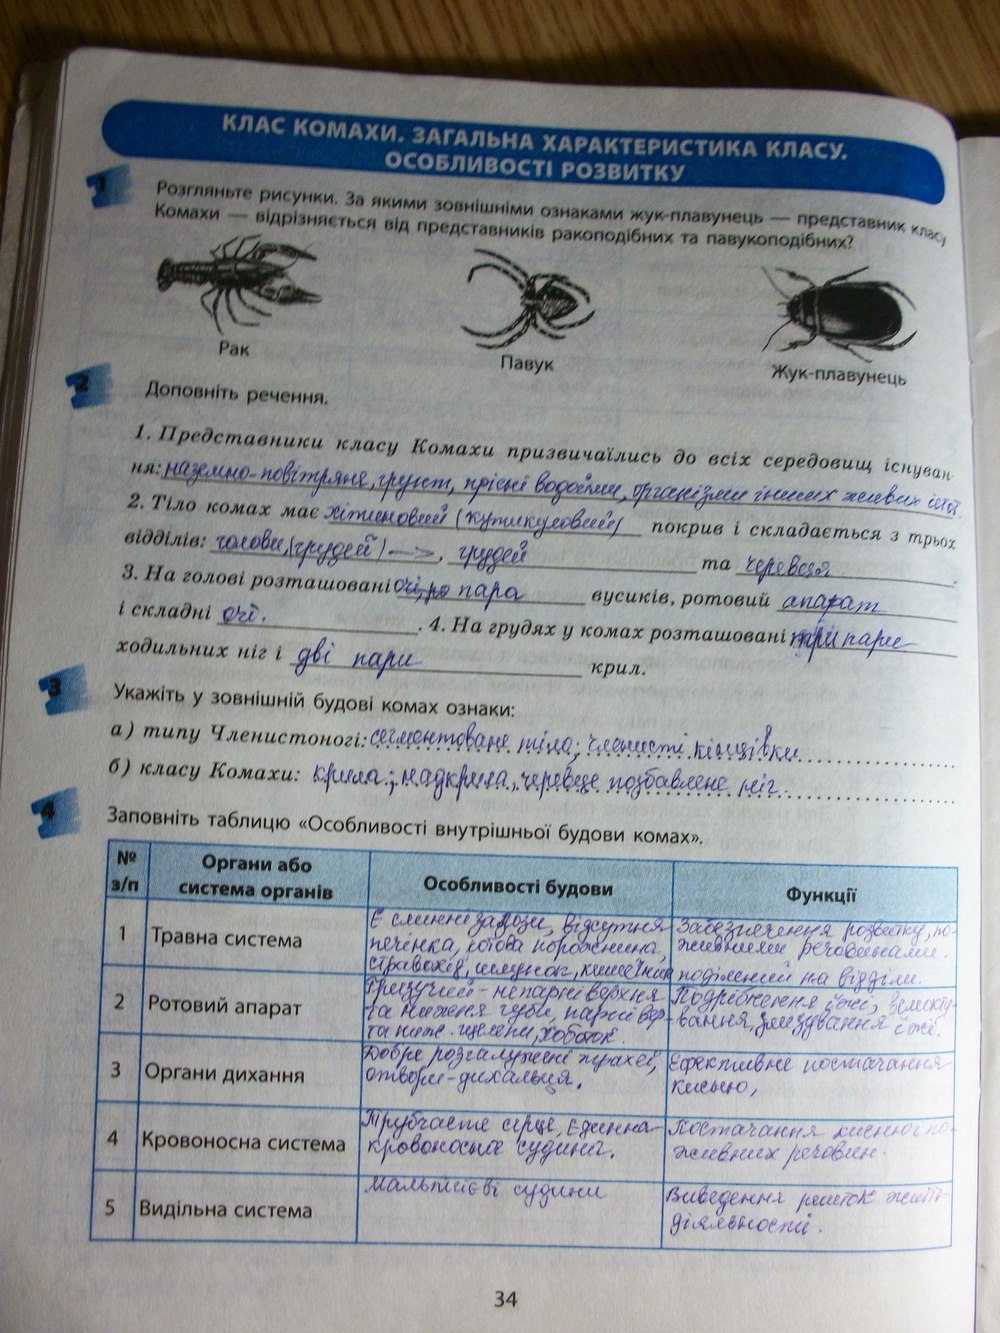 КЛАС КОМАХИ. ЗАГАЛЬНА ХАРАКТЕРИСТИКА КЛАСУ.
ОСОБЛИВОСТІ РОЗВИТКУ
1
Розгляньте рисунки. За якими зовнішніми ознаками жук-плавунець — представник класу
Комахи — відрізняється від представників ракоподібних та павукоподібних?
Рак
Павук
Жук-плавунець
2
Доповніть речення.
1. Представники класу Комахи призвичаїлись до всіх середовищ існуван-
ня: наземно-повітряне, грунт, прісні водойми, організми інших живих істот.
2. Тіло комах має хітиновий (кутикуловий) покрив і складається з трьох
відділів: голови, (грудей) —>, грудей та черевця.
3. На голові розташовані очі, пара вусиків, ротовий апарат
і складні очі. . 4. На грудях у комах розташовані три пари
ходильних ніг і дві пари крил.
3
Укажіть у зовнішній будові комах ознаки:
а) типу Членистоногі: сегментоване тіло; членисті кінцівки
б) класу Комахи: крила; надкрила, черевце позбавлене ніг.
4
Заповніть таблицю «Особливості внутрішньої будови комах».
№ з/п
Органи або система органів
Особливості будови
Функції
1
Травна система
Є слинні залози, відсутня
печінка, ротова порожнина,
стравохід, шлунок, кишечник
Забезпечення розвитку, по-
живними речовинами.
поділений на відділи.
2
Ротовий апарат
Гризучий - непарні верхня
та нижня губи, парні вер
та ниж. щелепи, хоботок.
Подрібнення їжі,
вання, злизування їжі.
3
Органи дихання
Добре розгалужені трахеї,
отвори-дихальця.
Ефективне постачання
кисню,
4
Кровоносна система
Трубчасте серце, єдинна
кровоносна судина.
Постачання кисню і по-
живних речовин.
5
Видільна система
Мальпігієві судини
Виведення решток життє-
діяльності.
34